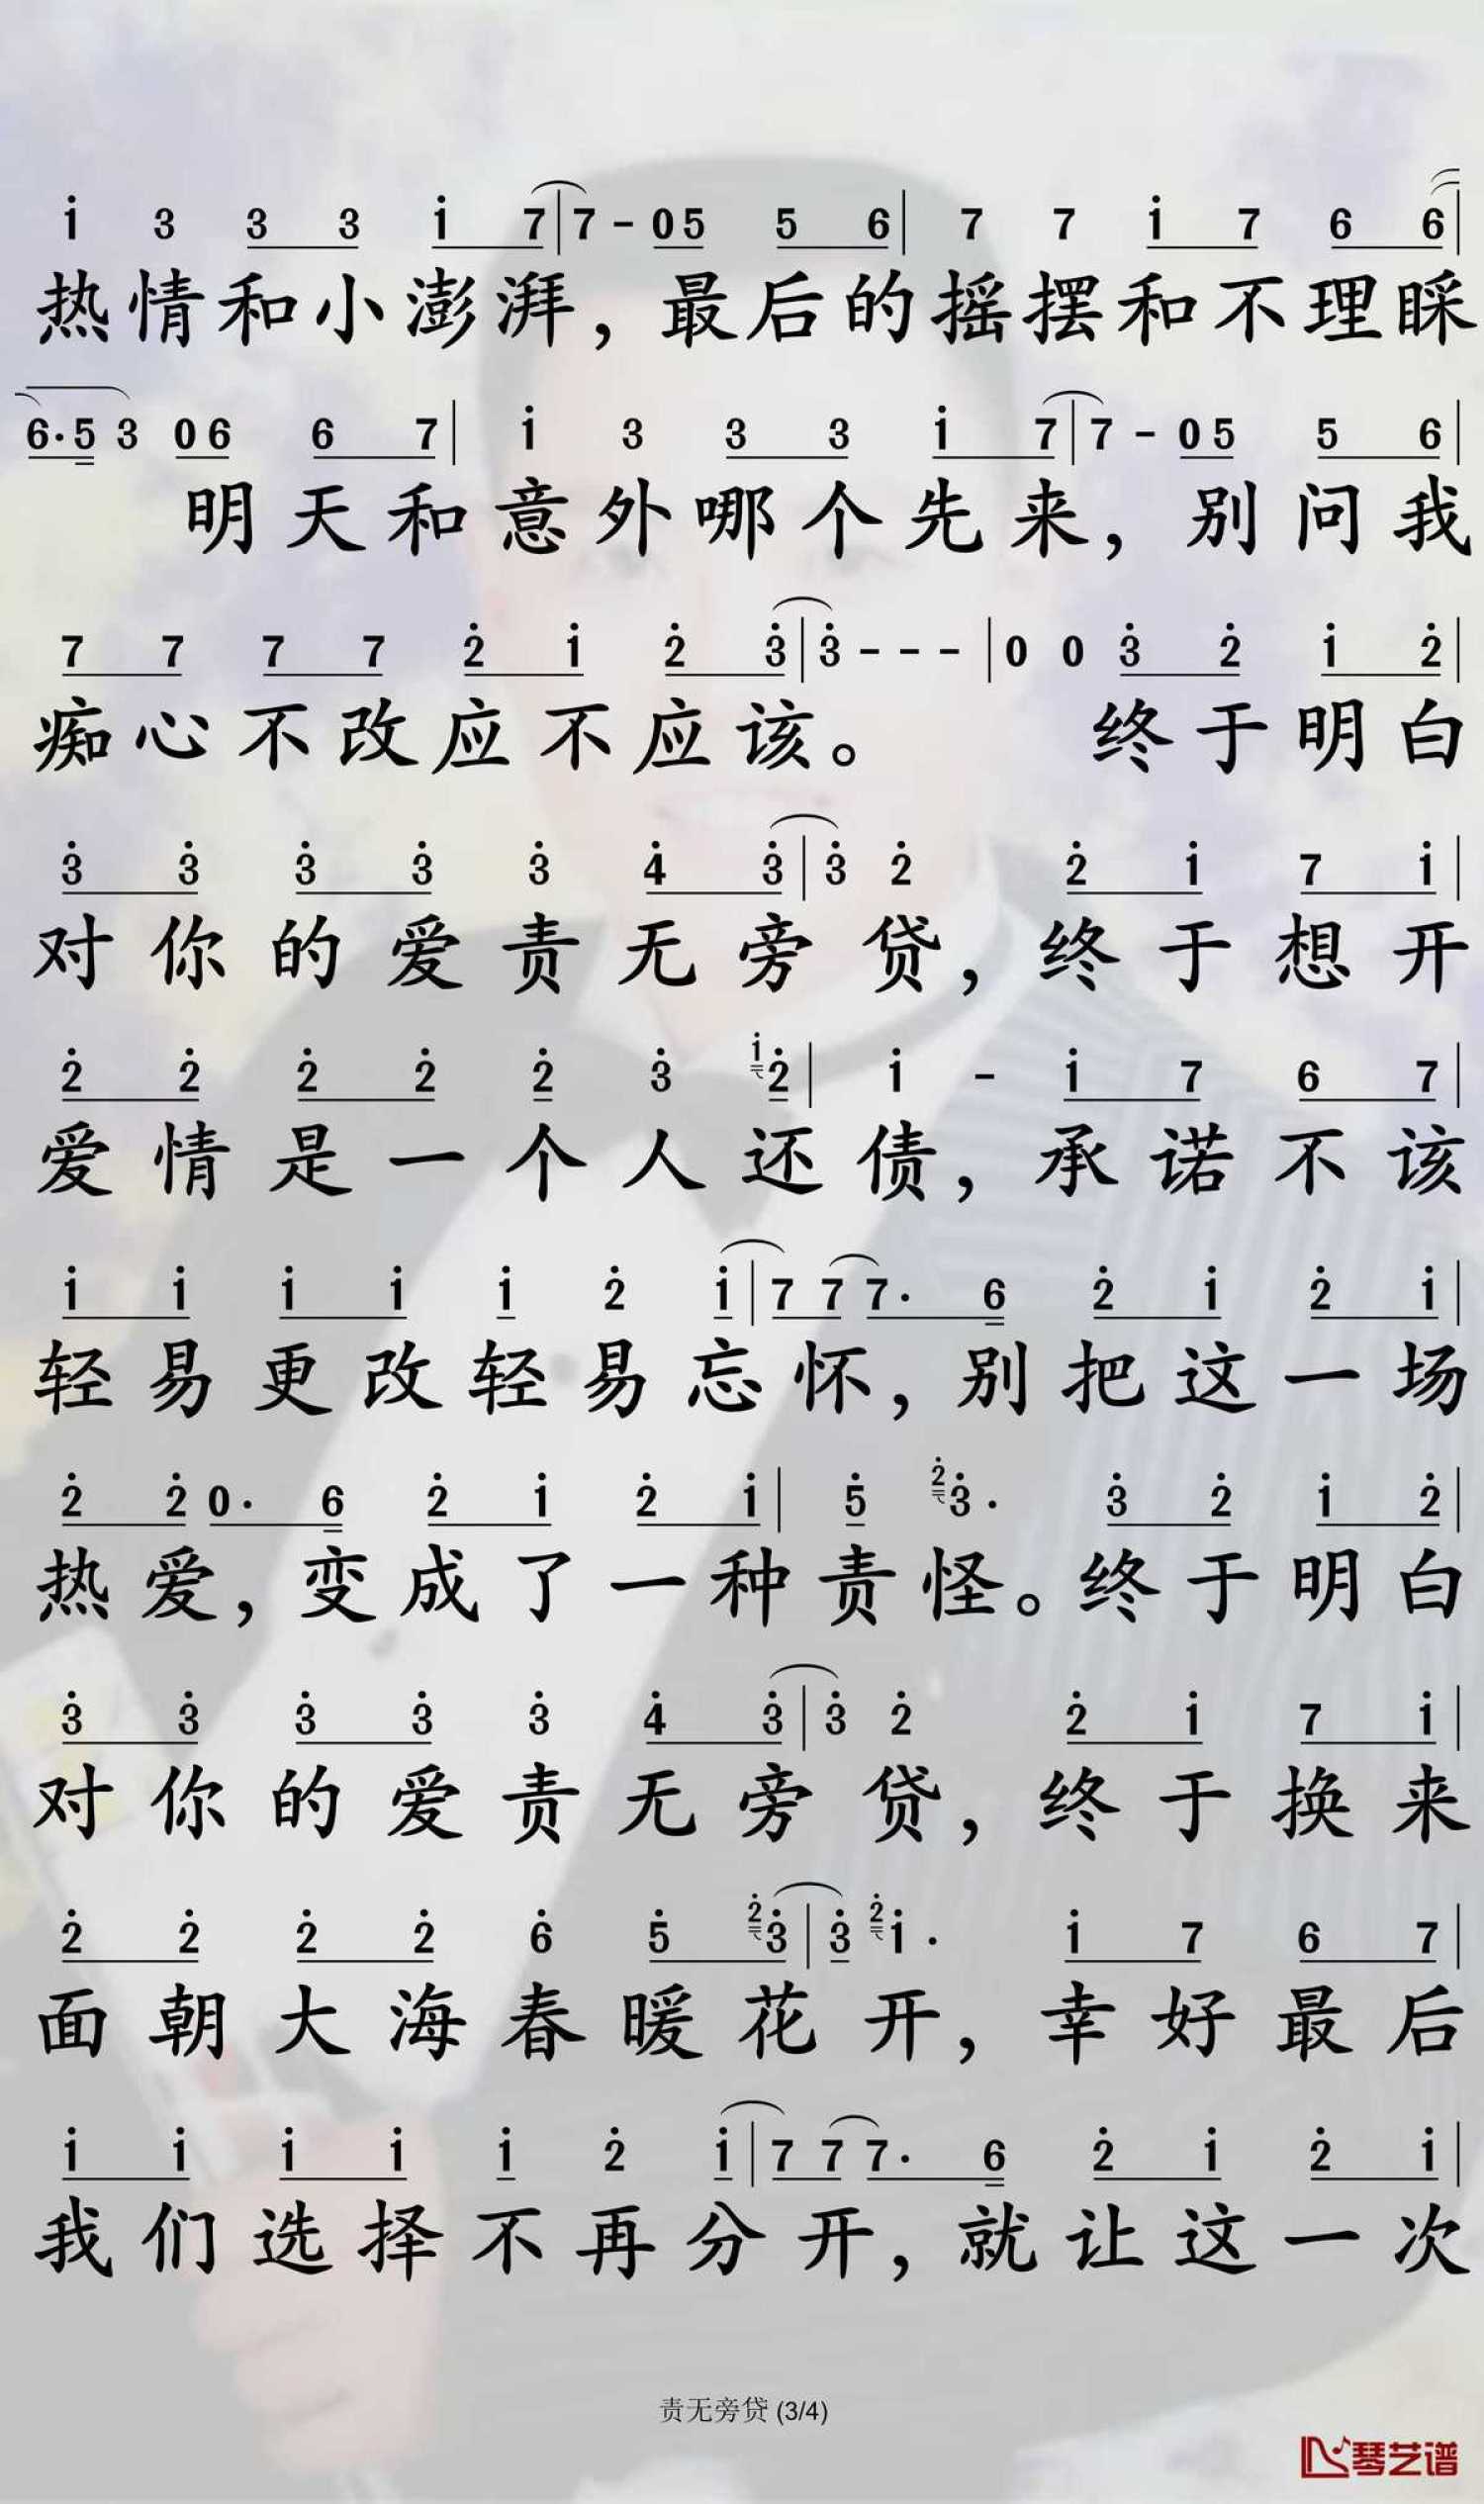 i 3 3 3 i 7 | 7 - 0 5 5 6 | 7 7 i 7 6 6 |
热情和小澎湃，最后的摇摆和不理睬
6 · 5 3 0 6 6 7 | i 3 3 3 i 7 | 7 - 0 5 5 6 |
明天和意外哪个先来，别问我
7 7 7 7 2̇ i 2̇ 3̇ | 3̇ - - - | 0 0 3̇ 2̇ i 2̇ |
痴心不改应不应该。 终于明白
3̇ 3̇ 3̇ 3̇ 3̇ 4̇ 3̇ | 3̇ 2̇ 2̇ i 7 i |
对你的爱责无旁贷，终于想开
2̇ 2̇ 2̇ 2̇ 2̇ 3̇ i 2̇ | i - i 7 6 7 |
爱情是一个人还债，承诺不该
i i i i i 2̇ i | 7 7 7 · 6 2̇ i 2̇ i |
轻易更改轻易忘怀，别把这一场
2̇ 2̇ 0 · 6 2̇ i 2̇ i | 5̇ 2̇ 3̇ · 3̇ 2̇ i 2̇ |
热爱，变成了一种责怪。终于明白
3̇ 3̇ 3̇ 3̇ 3̇ 4̇ 3̇ | 3̇ 2̇ 2̇ i 7 i |
对你的爱责无旁贷，终于换来
2̇ 2̇ 2̇ 2̇ 6̇ 5̇ 2̇ 3̇ | 3̇ 2̇ i · i 7 6 7 |
面朝大海春暖花开，幸好最后
i i i i i 2̇ i | 7 7 7 · 6 2̇ i 2̇ i |
我们选择不再分开，就让这一次
责无旁贷 (3/4)
琴艺谱